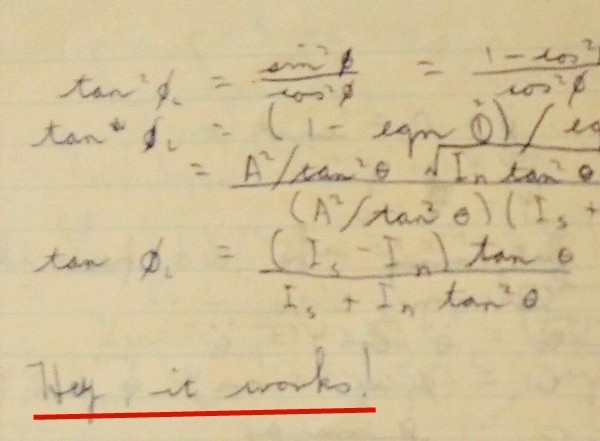 tan² ϕ = sin²ϕ / cos²ϕ = 1 - cos² / cos²ϕ
tan² ϕ = (1 - eqn ①) / eq
= A²/tan²θ √In tan²θ / (A²/tan²θ)(Is +
tan ϕ = (Is - In) tan θ / Is + In tan²θ
Hey, it works!